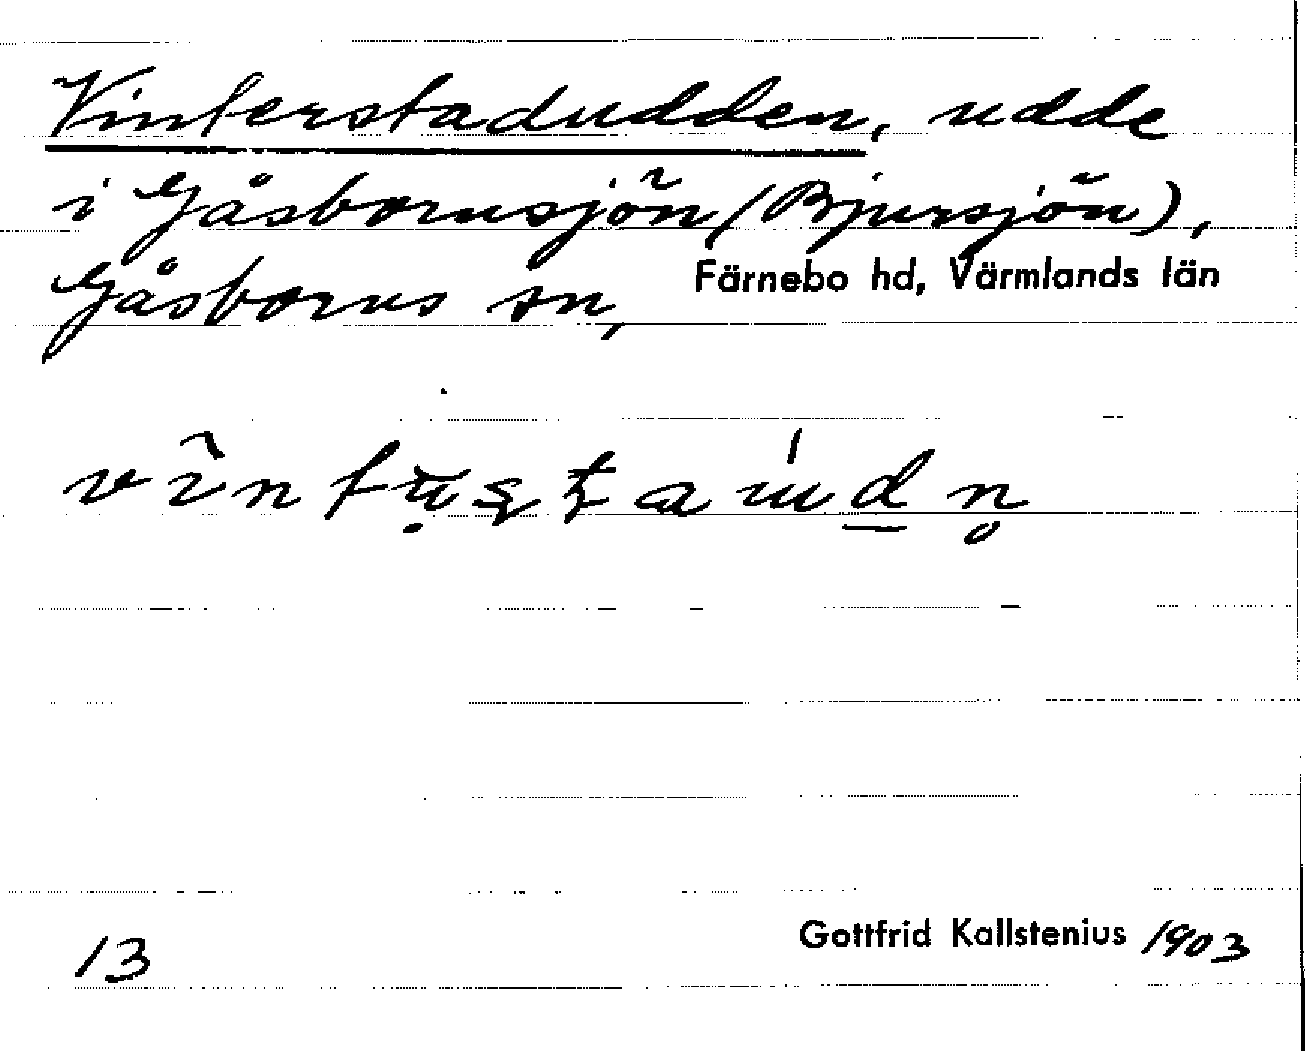 Vinterstadudden, udde
i Gåsbornsjön (Bjursjön),
Gåsborns sn, Färnebo hd, Värmlands län
13 Gottfrid Kallstenius 1903